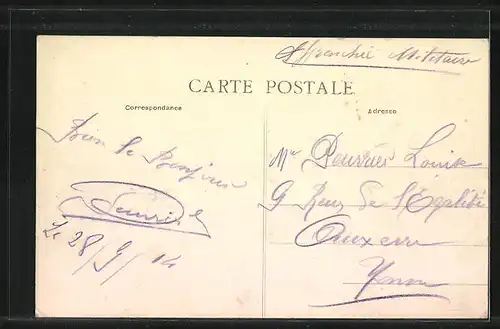 Affranchie Militaire
CARTE POSTALE
Correspondance
Adresse
Bien le Bonjour
Le 28/9/14
Mr Louise
9 Rue de l'Egalité
Auxerre
Yonne